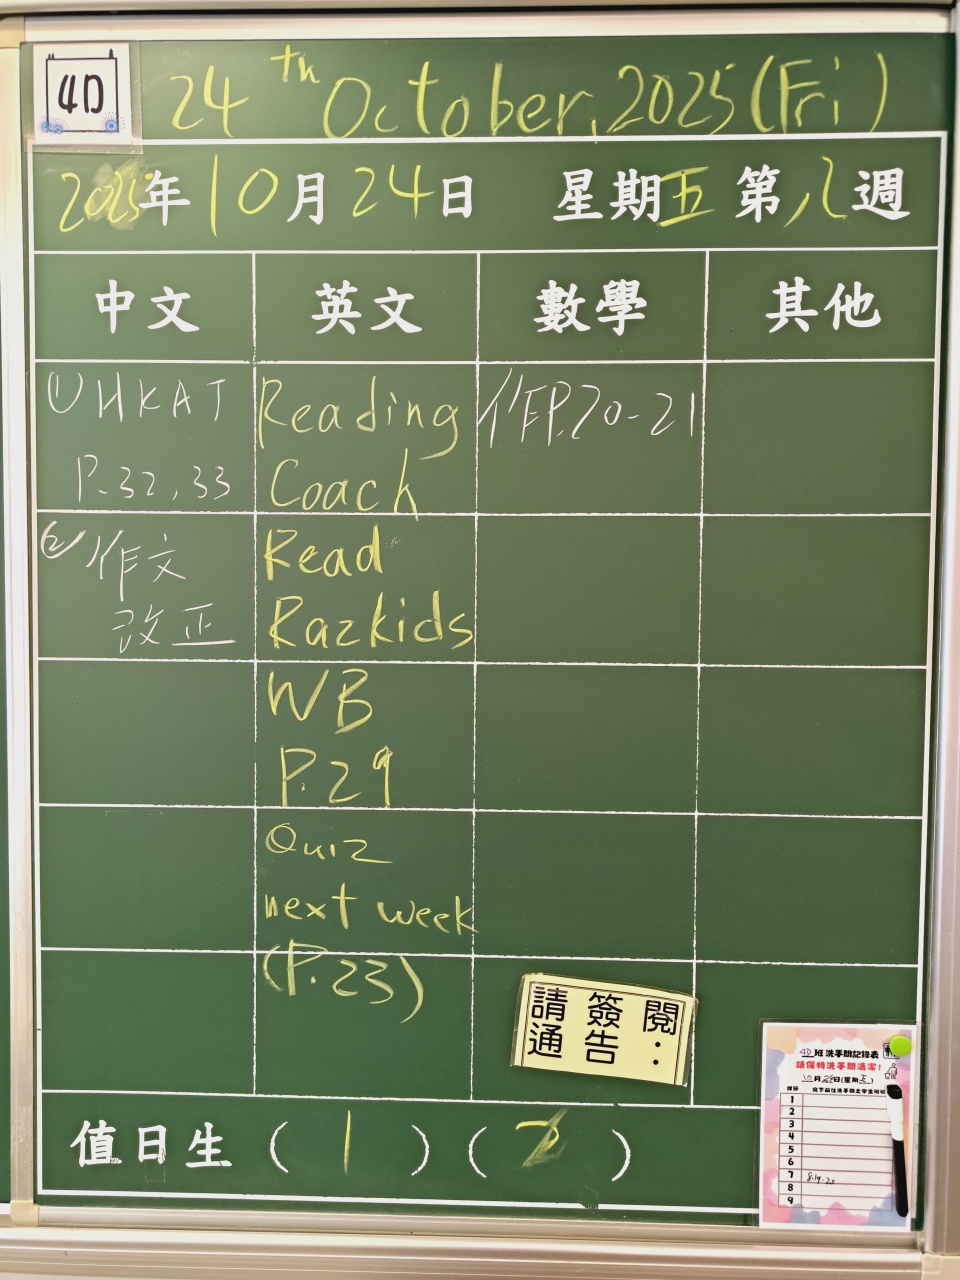 4D
24th October, 2025 (Fri)
2025年10月24日 星期五 第八週
中文 英文 數學 其他
①HKAT
P.32,33
②作文
改正
Reading
Coach
Read
Razkids
WB
P.29
Quiz
next week
(P.23)
作P.20-21
請簽閱:
通告
4D班洗手間記錄表
請保持洗手間清潔!
10月24日(星期五)
1
2
3
4
5
6
7
8
9
值日生(1)(2)